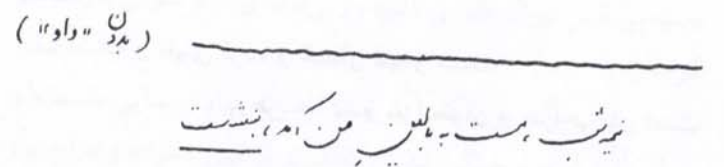 (بدون "واو")
نیمشب، مست به بالین من آمد، بنشست